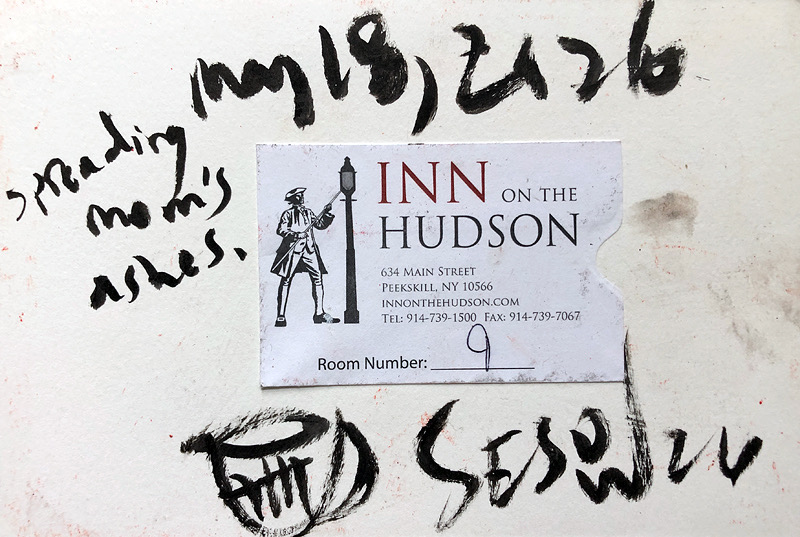 May 18, 2026
spreading
mom's
ashes.
INN ON THE
HUDSON
634 MAIN STREET
PEEKSKILL, NY 10566
INNONTHEHUDSON.COM
TEL: 914-739-1500 FAX: 914-739-7067
Room Number: 9